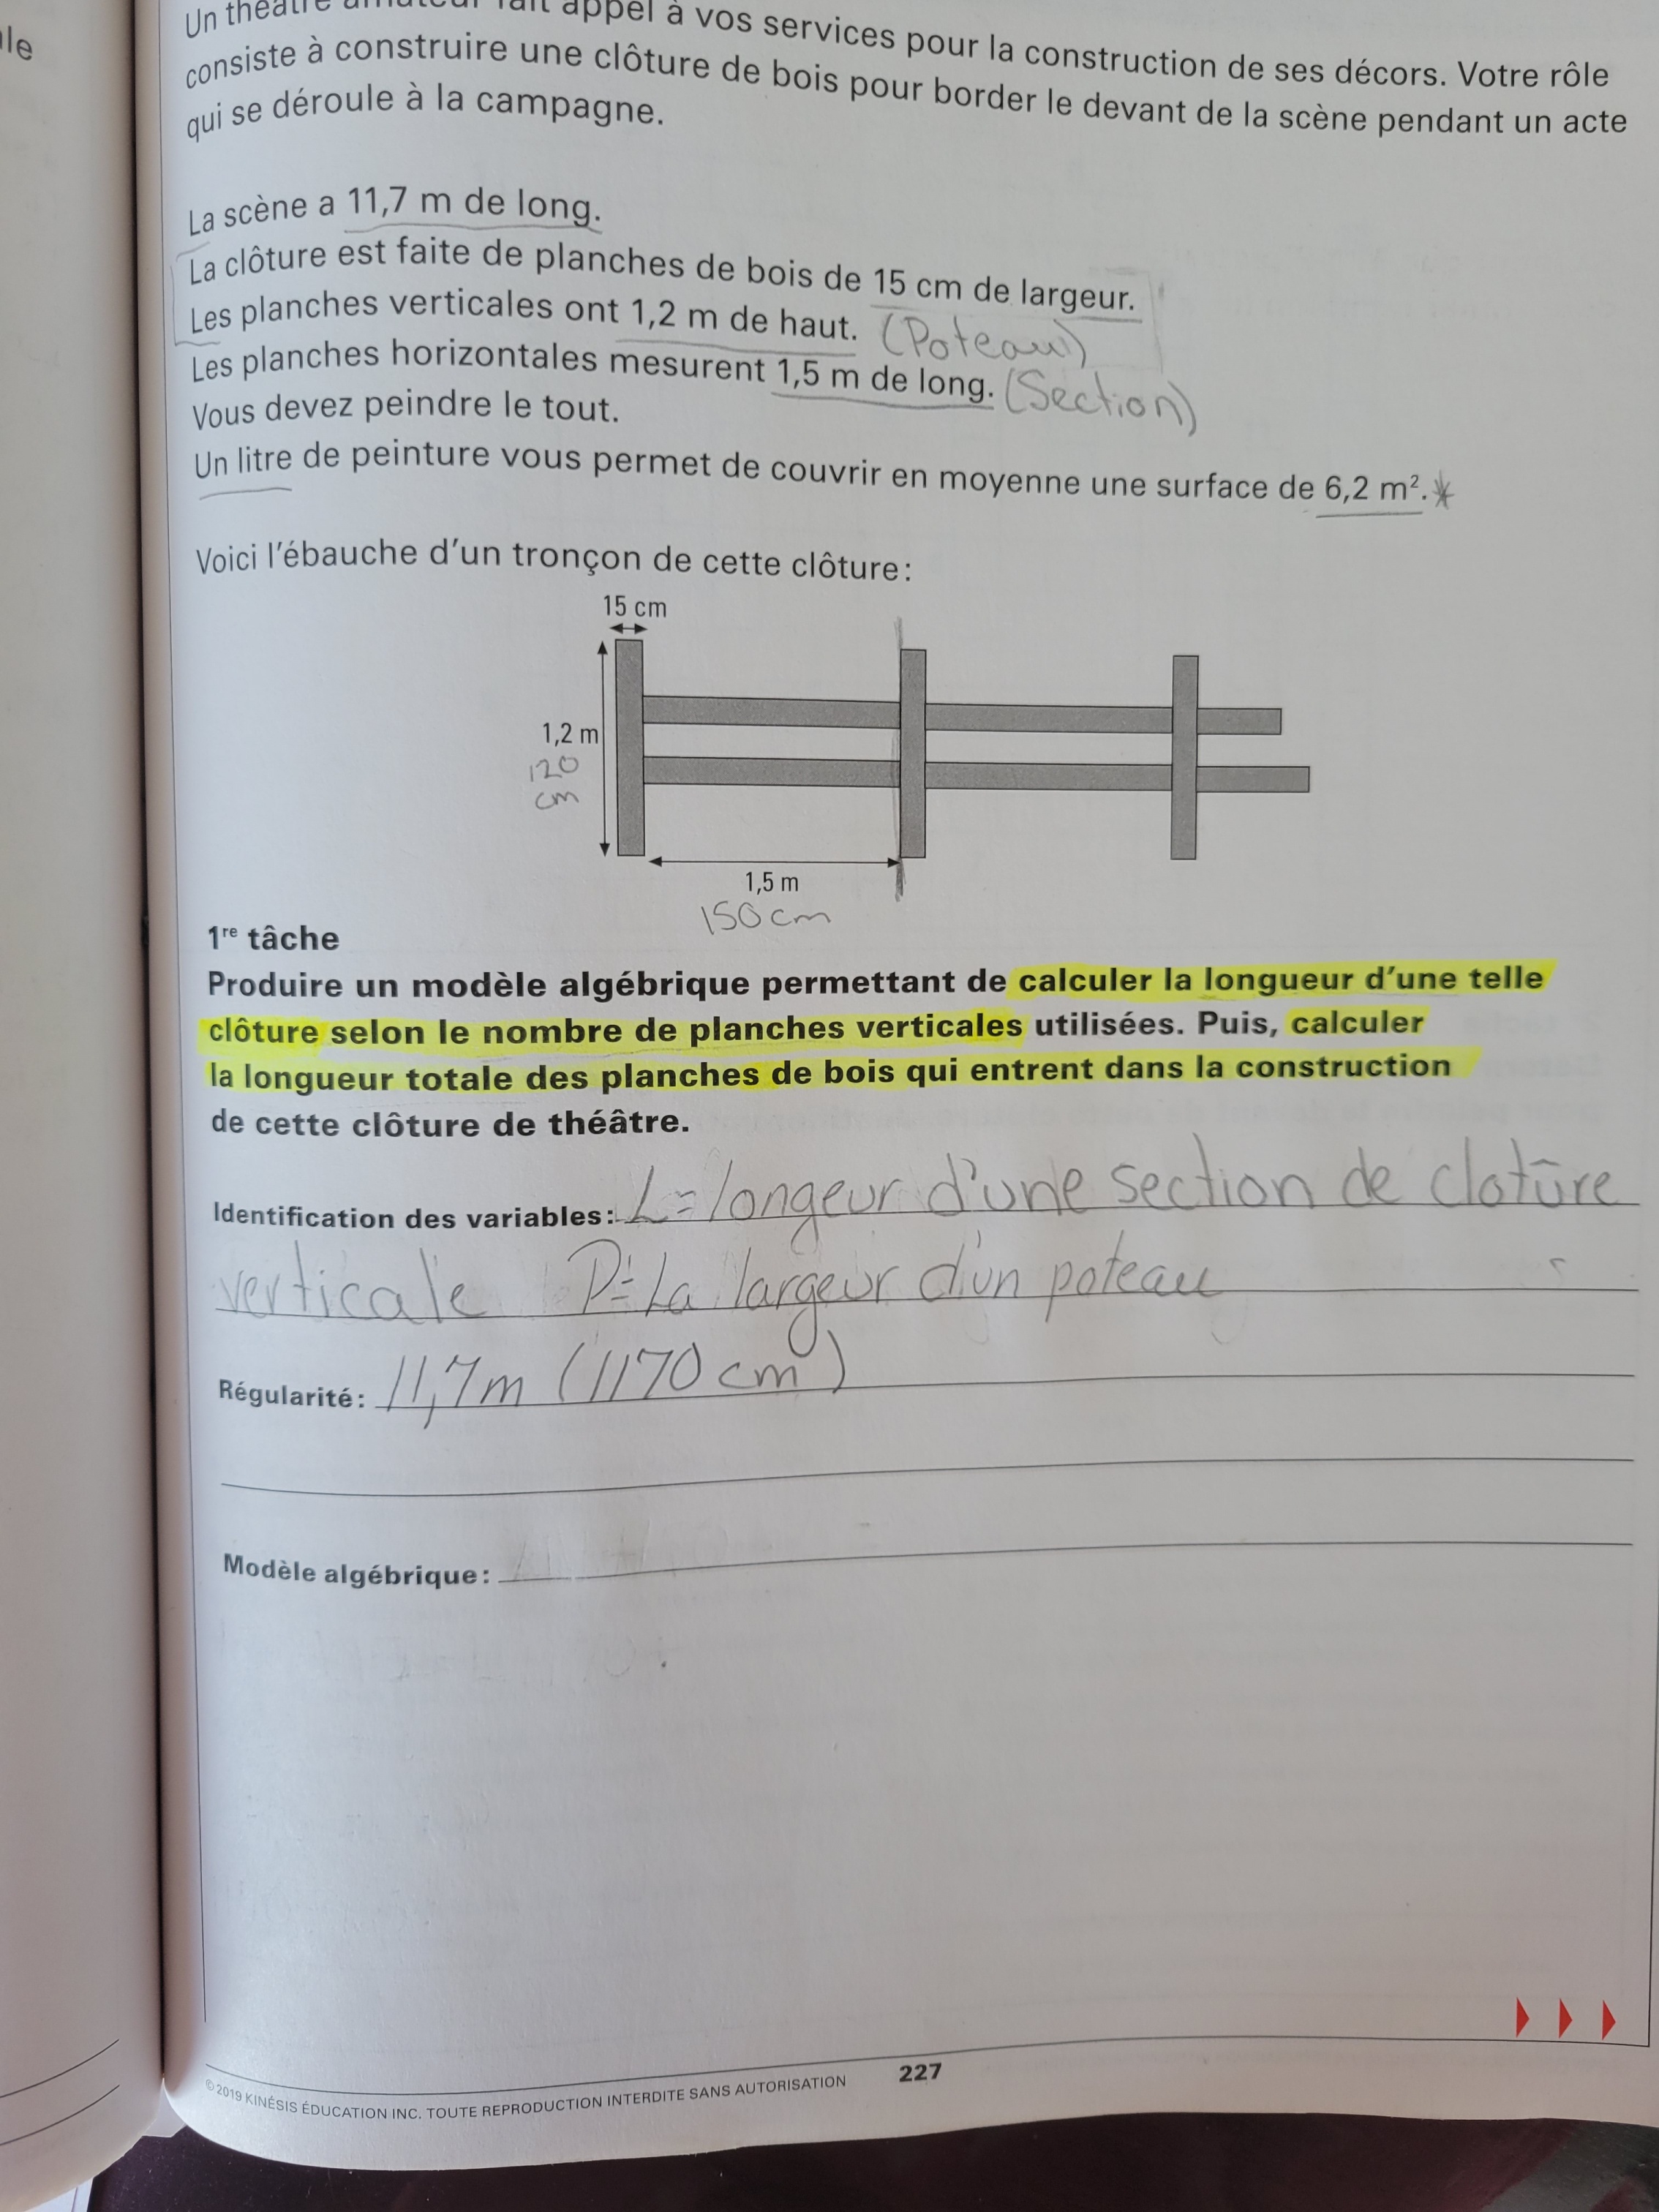 le
Un théâtre amateur fait appel à vos services pour la construction de ses décors. Votre rôle
consiste à construire une clôture de bois pour border le devant de la scène pendant un acte
qui se déroule à la campagne.
La scène a 11,7 m de long.
La clôture est faite de planches de bois de 15 cm de largeur.
Les planches verticales ont 1,2 m de haut. (Poteau)
Les planches horizontales mesurent 1,5 m de long. (Section)
Vous devez peindre le tout.
Un litre de peinture vous permet de couvrir en moyenne une surface de 6,2 m².*
Voici l'ébauche d'un tronçon de cette clôture :
15 cm
1,2 m
120
cm
1,5 m
150 cm
1re tâche
Produire un modèle algébrique permettant de calculer la longueur d'une telle
clôture selon le nombre de planches verticales utilisées. Puis, calculer
la longueur totale des planches de bois qui entrent dans la construction
de cette clôture de théâtre.
Identification des variables : L = longeur d'une section de clotûre
verticale P = La largeur d'un poteau
Régularité : 11,7m (1170 cm)
Modèle algébrique :
©2019 KINÉSIS ÉDUCATION INC. TOUTE REPRODUCTION INTERDITE SANS AUTORISATION
227